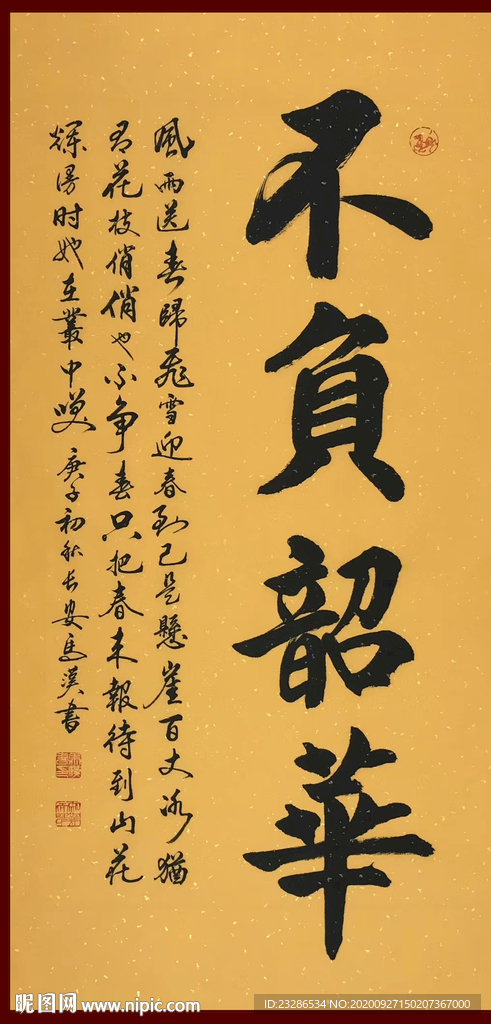 不負韶華
風雨送春歸飛雪迎春到已是懸崖百丈冰猶
有花枝俏俏也不争春只把春来報待到山花
爛漫时她在叢中笑 庚子初秋长安馬漢書
昵图网 www.nipic.com
ID:23286534 NO:20200927150207367000